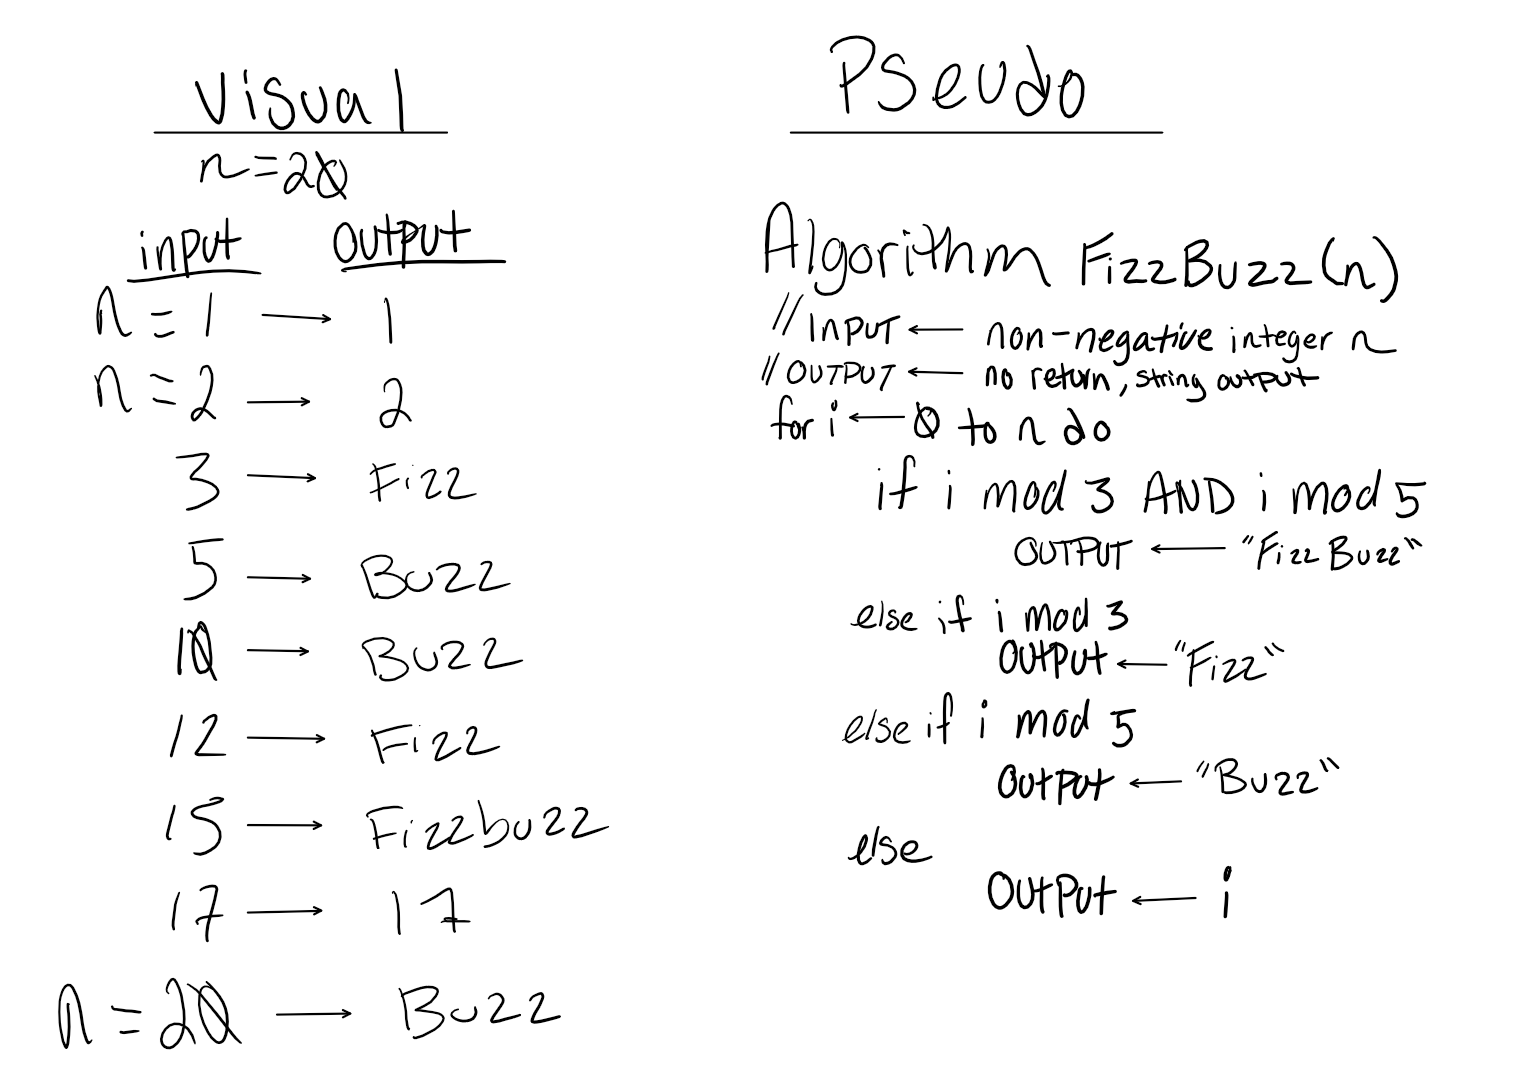 Visual
n=20
input output
n=1 → 1
n=2 → 2
3 → Fizz
5 → Buzz
10 → Buzz
12 → Fizz
15 → Fizzbuzz
17 → 17
n=20 → Buzz
PSeudo
Algorithm FizzBuzz(n)
// INPUT ← non-negative integer n
// OUTPUT ← no return, string output
for i ← 0 to n do
if i mod 3 AND i mod 5
OUTPUT ← "FizzBuzz"
else if i mod 3
OUtPUt ← "Fizz"
else if i mod 5
OUtPUt ← "Buzz"
else
OUtPUt ← i